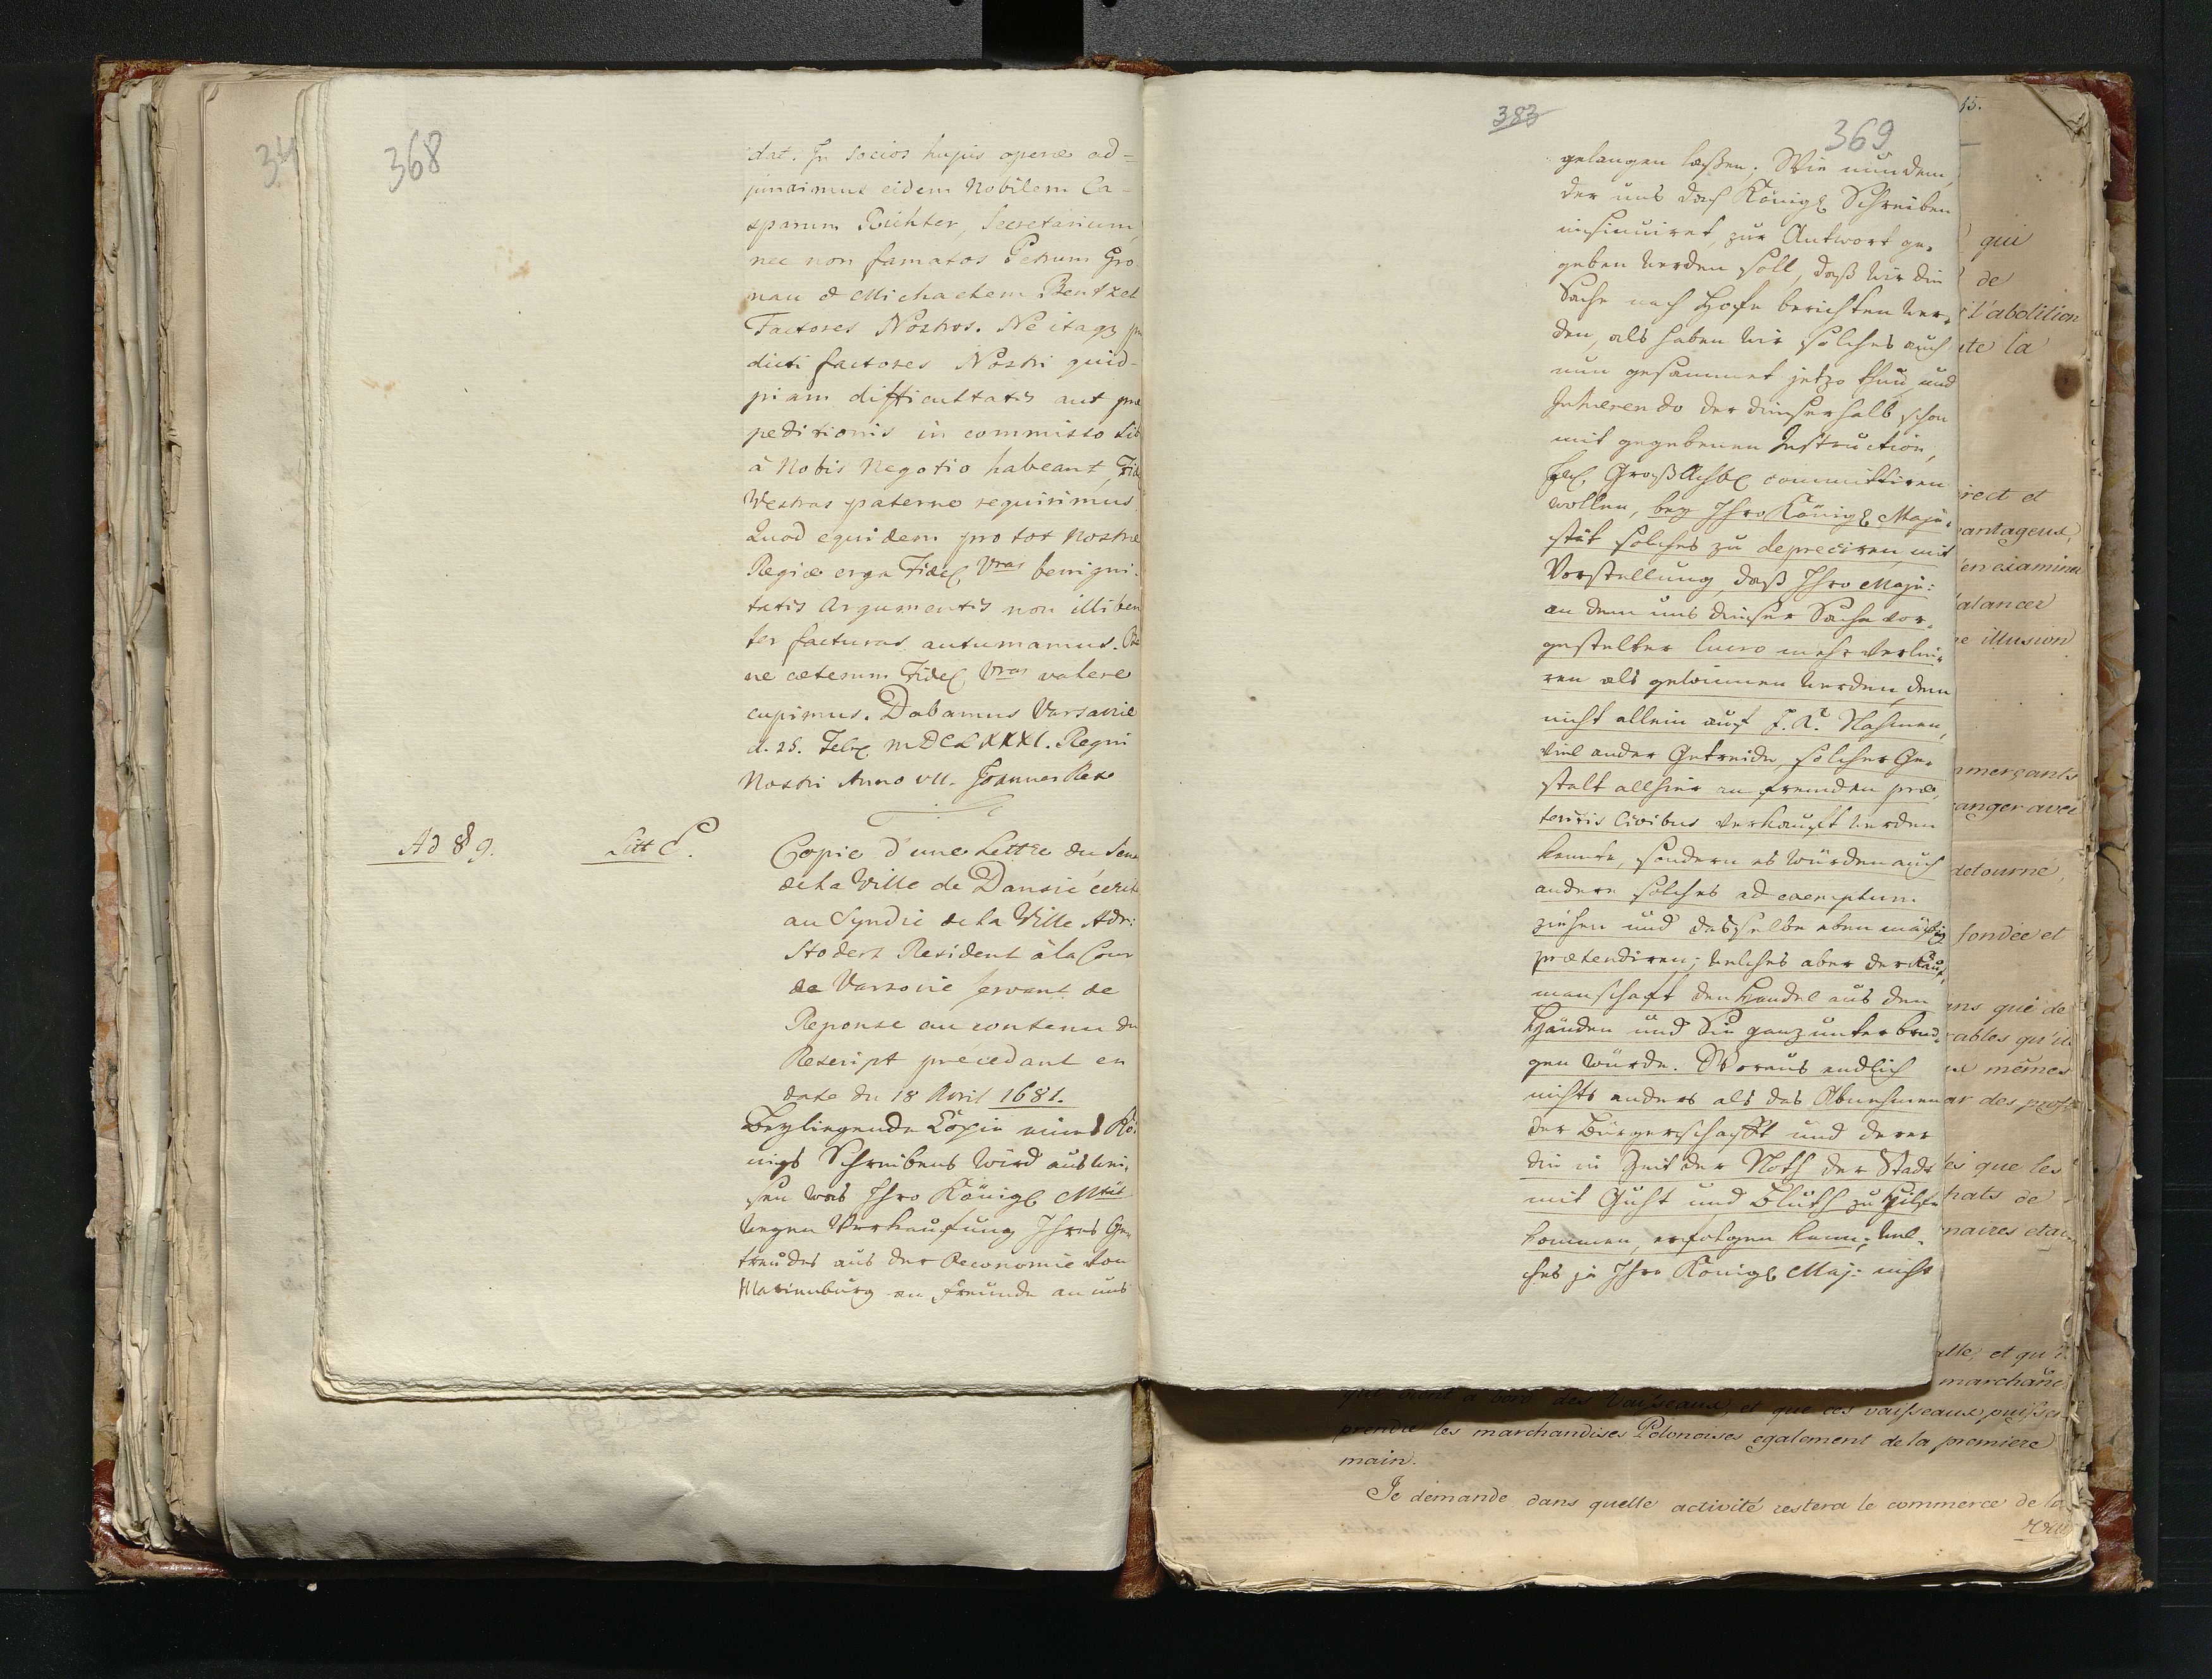 368
dat. In socios hujus operæ ad=
junximus eidem Nobilem Ca-
sparum Richter, Secretarium,
nec non famatos Petrum Gro
nau & Michaelem Bentzel
Factores Nostros. Ne itaq
dicti factores Nostri quid-
piam difficultatis aut præ
peditionis in commisso sib
à Nobis Negotio habeant, Fid
Vestras paterne requirimus
Quod equidem pro tot Nostræ
Regiæ erga Fidel Vras benigni-
tatis Argumentis non illiben
ter facturas autumamus. Be
ne cæterum Fidel Vras valere
cupimus. Dabamus Varsaviæ
d. 25. Febr MDCLXXXI. Regni
Nostri Anno VII. Joannes Rex
Ad § 9. Litt C.
Copie d'une Lettre du Sena
de la Ville de Danzic écrite
au Syndic de la Ville Adr:
Stodert Resident à la Cour
de Varsovie servant de
Reponse au contenu du
Rescript précedant en
date du 18 Avril 1681.
Beyliegende Copie eines Kö
nigs Schreibens wird auswei,
sen was Ihro Königl Mtät
wegen Verkaufung Ihres Ge,
treudes aus der Oeconomie von
Marienburg an Freunde an uns
383
369
gelangen laßen. Wie nun dem,
der uns das Königl Schreiben
insinuiret, zur Antwort ge,
geben werden soll, daß wir die
Sache nach Hofe berichten wer,
den, als haben wir solches auch
nun gesammet jetzo thun und
Inhærendo der dieserhalb schon
mit gegebenen Instruction,
GroßAchtb committiren
wollen, bey Ihro Königl Maje,
stät solches zu depreciren, mit
Vorstellung, daß Ihro Maje:
an dem uns dieser Sache vor,
gestelten lucro mehr verlie,
ren als gewinnen werden, denn
nicht allein auf Nahmen,
viel ander Getreide, solcher Ge,
stalt allhier an fremden præ,
teritis Civibus verkauft werden
konnte, sondern es würden auch
andere solches ad exemplum
ziehen und dasselbe eben mäßig
prætendiren; welches aber der Kauf,
manschaft den Handel aus den
Händen und Sie ganz unter brin,
gen würde. Woraus endlich
nichts anders als das Abnehmen
der Bürgerschafft und derer
die in Zeit der Noth der Stadt
mit Guht und Bluth zu Hülfe
kommen, erfolgen kann; wel,
ches ja Ihro Königl Maj: nicht
15.
qui
de
l'abolition
te la
rect et
antageux,
en examina
alancer
e illusion
mmerçants
anger avec
detourne,
fondée et
ns que de
ables qu'il
ux mêmes
ar des prof
és que les
hats de
naires eta
alle, et qu'i
marchand
et que ces vaisseaux puiss
prendre les marchandises Polonoises egalement de la premiere
main.
Je demande dans quelle activité restera le commerce de la